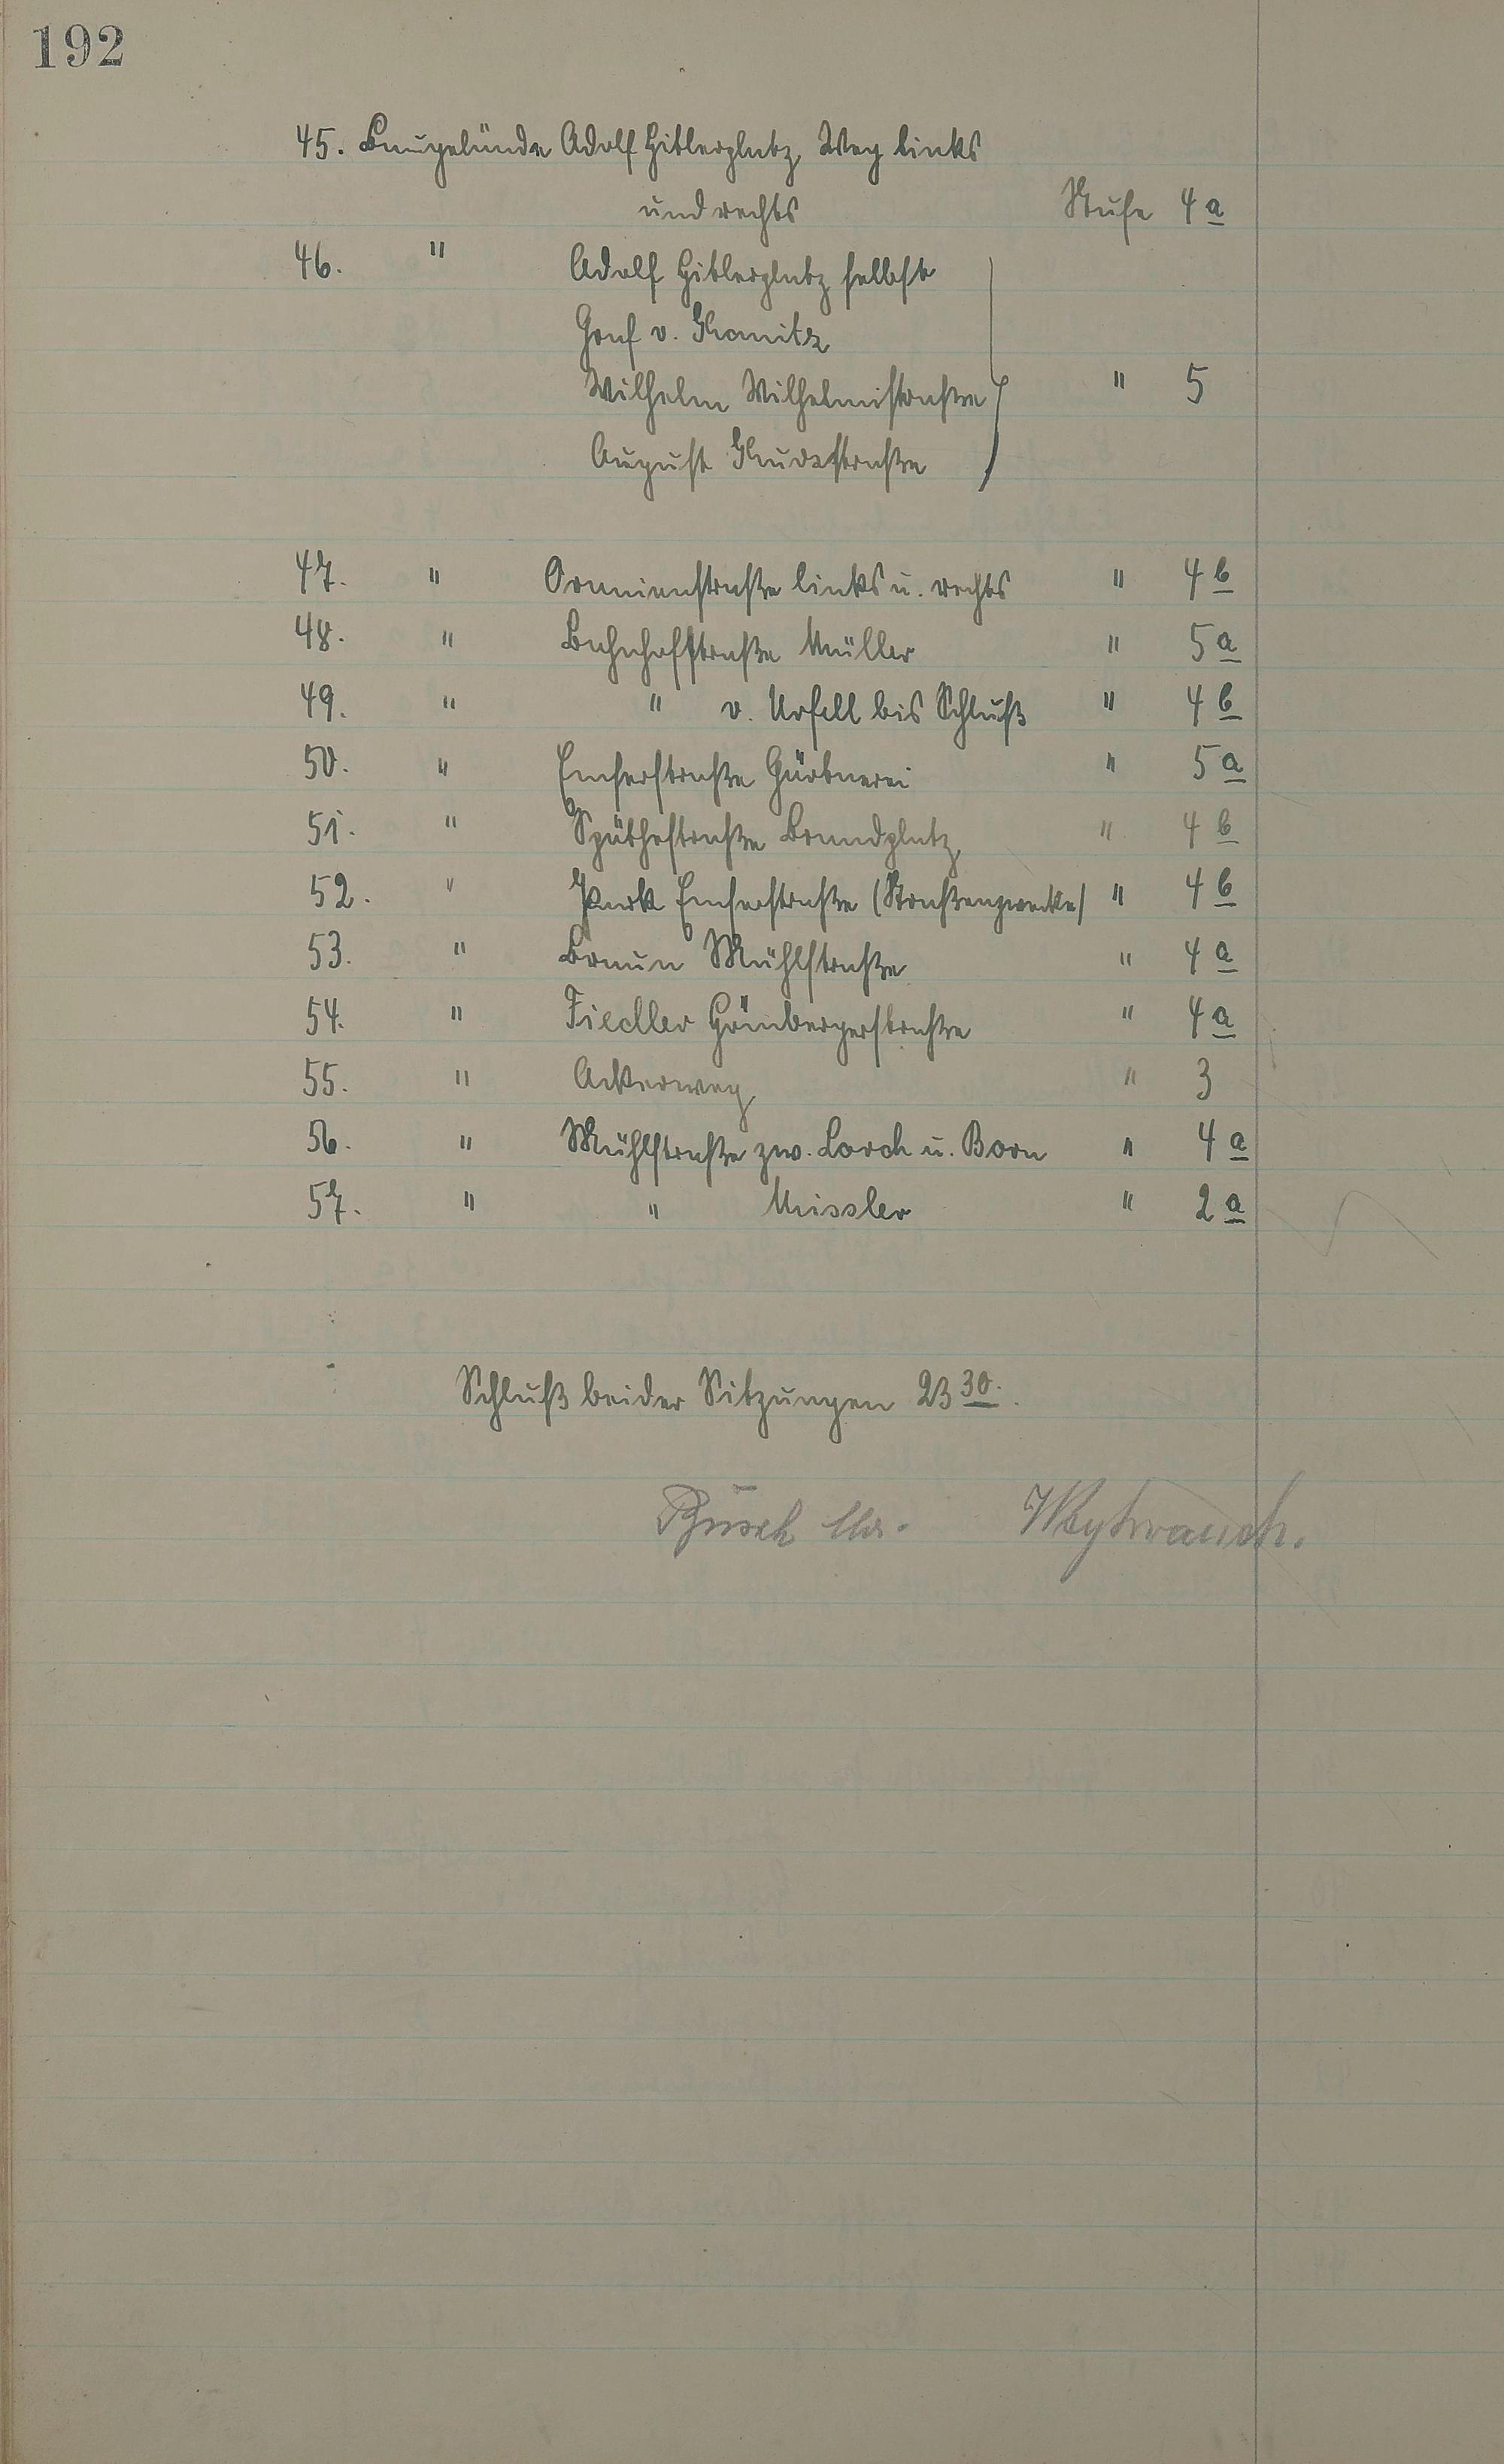 192
45. Baugelände Adolf Hitlerplatz, Weg links
und rechts Stufe 4a
46. " Adolf Hitlerplatz selbst
Graf v. Kanitz
Wilhelm Wilhelmistraße " 5
August Kudestraße
47. " Oranienstraße links u. rechts " 4b
48. " Bahnhofstraße Müller " 5a
49. " " v. Urfell bis Schluß " 4b
50. " Emserstraße Gärtnerei " 5a
51. " Späthestraße Brandplatz " 4b
52. " Park Emserstraße (Straßenzwecke) " 4b
53. " Braun Mühlstraße " 4a
54. " Fiedler Gömbergerstraße " 4a
55. " Ackerweg " 3
56. " Mühlstraße zw. Lorch u. Born " 4a
57. " " Missler " 2a
Schluß beider Sitzungen 23 30.
Busch Weyhrauch.